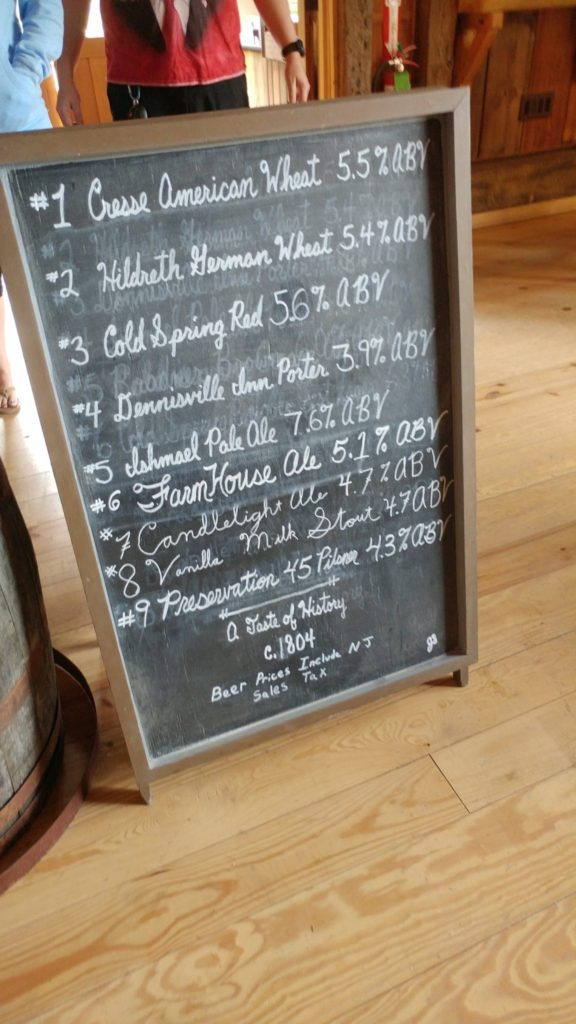 #1 Cresse American Wheat 5.5% ABV
#2 Hildreth German Wheat 5.4% ABV
#3 Cold Spring Red 5.6% ABV
#4 Dennisville Inn Porter 3.9% ABV
#5 Ishmael Pale Ale 7.6% ABV
#6 FarmHouse Ale 5.1% ABV
#7 Candlelight Ale 4.7% ABV
#8 Vanilla Milk Stout 4.7 ABV
#9 Preservation 45 Pilsner 4.3% ABV
A Taste of History
c.1804
Beer Prices Include NJ
Sales Tax